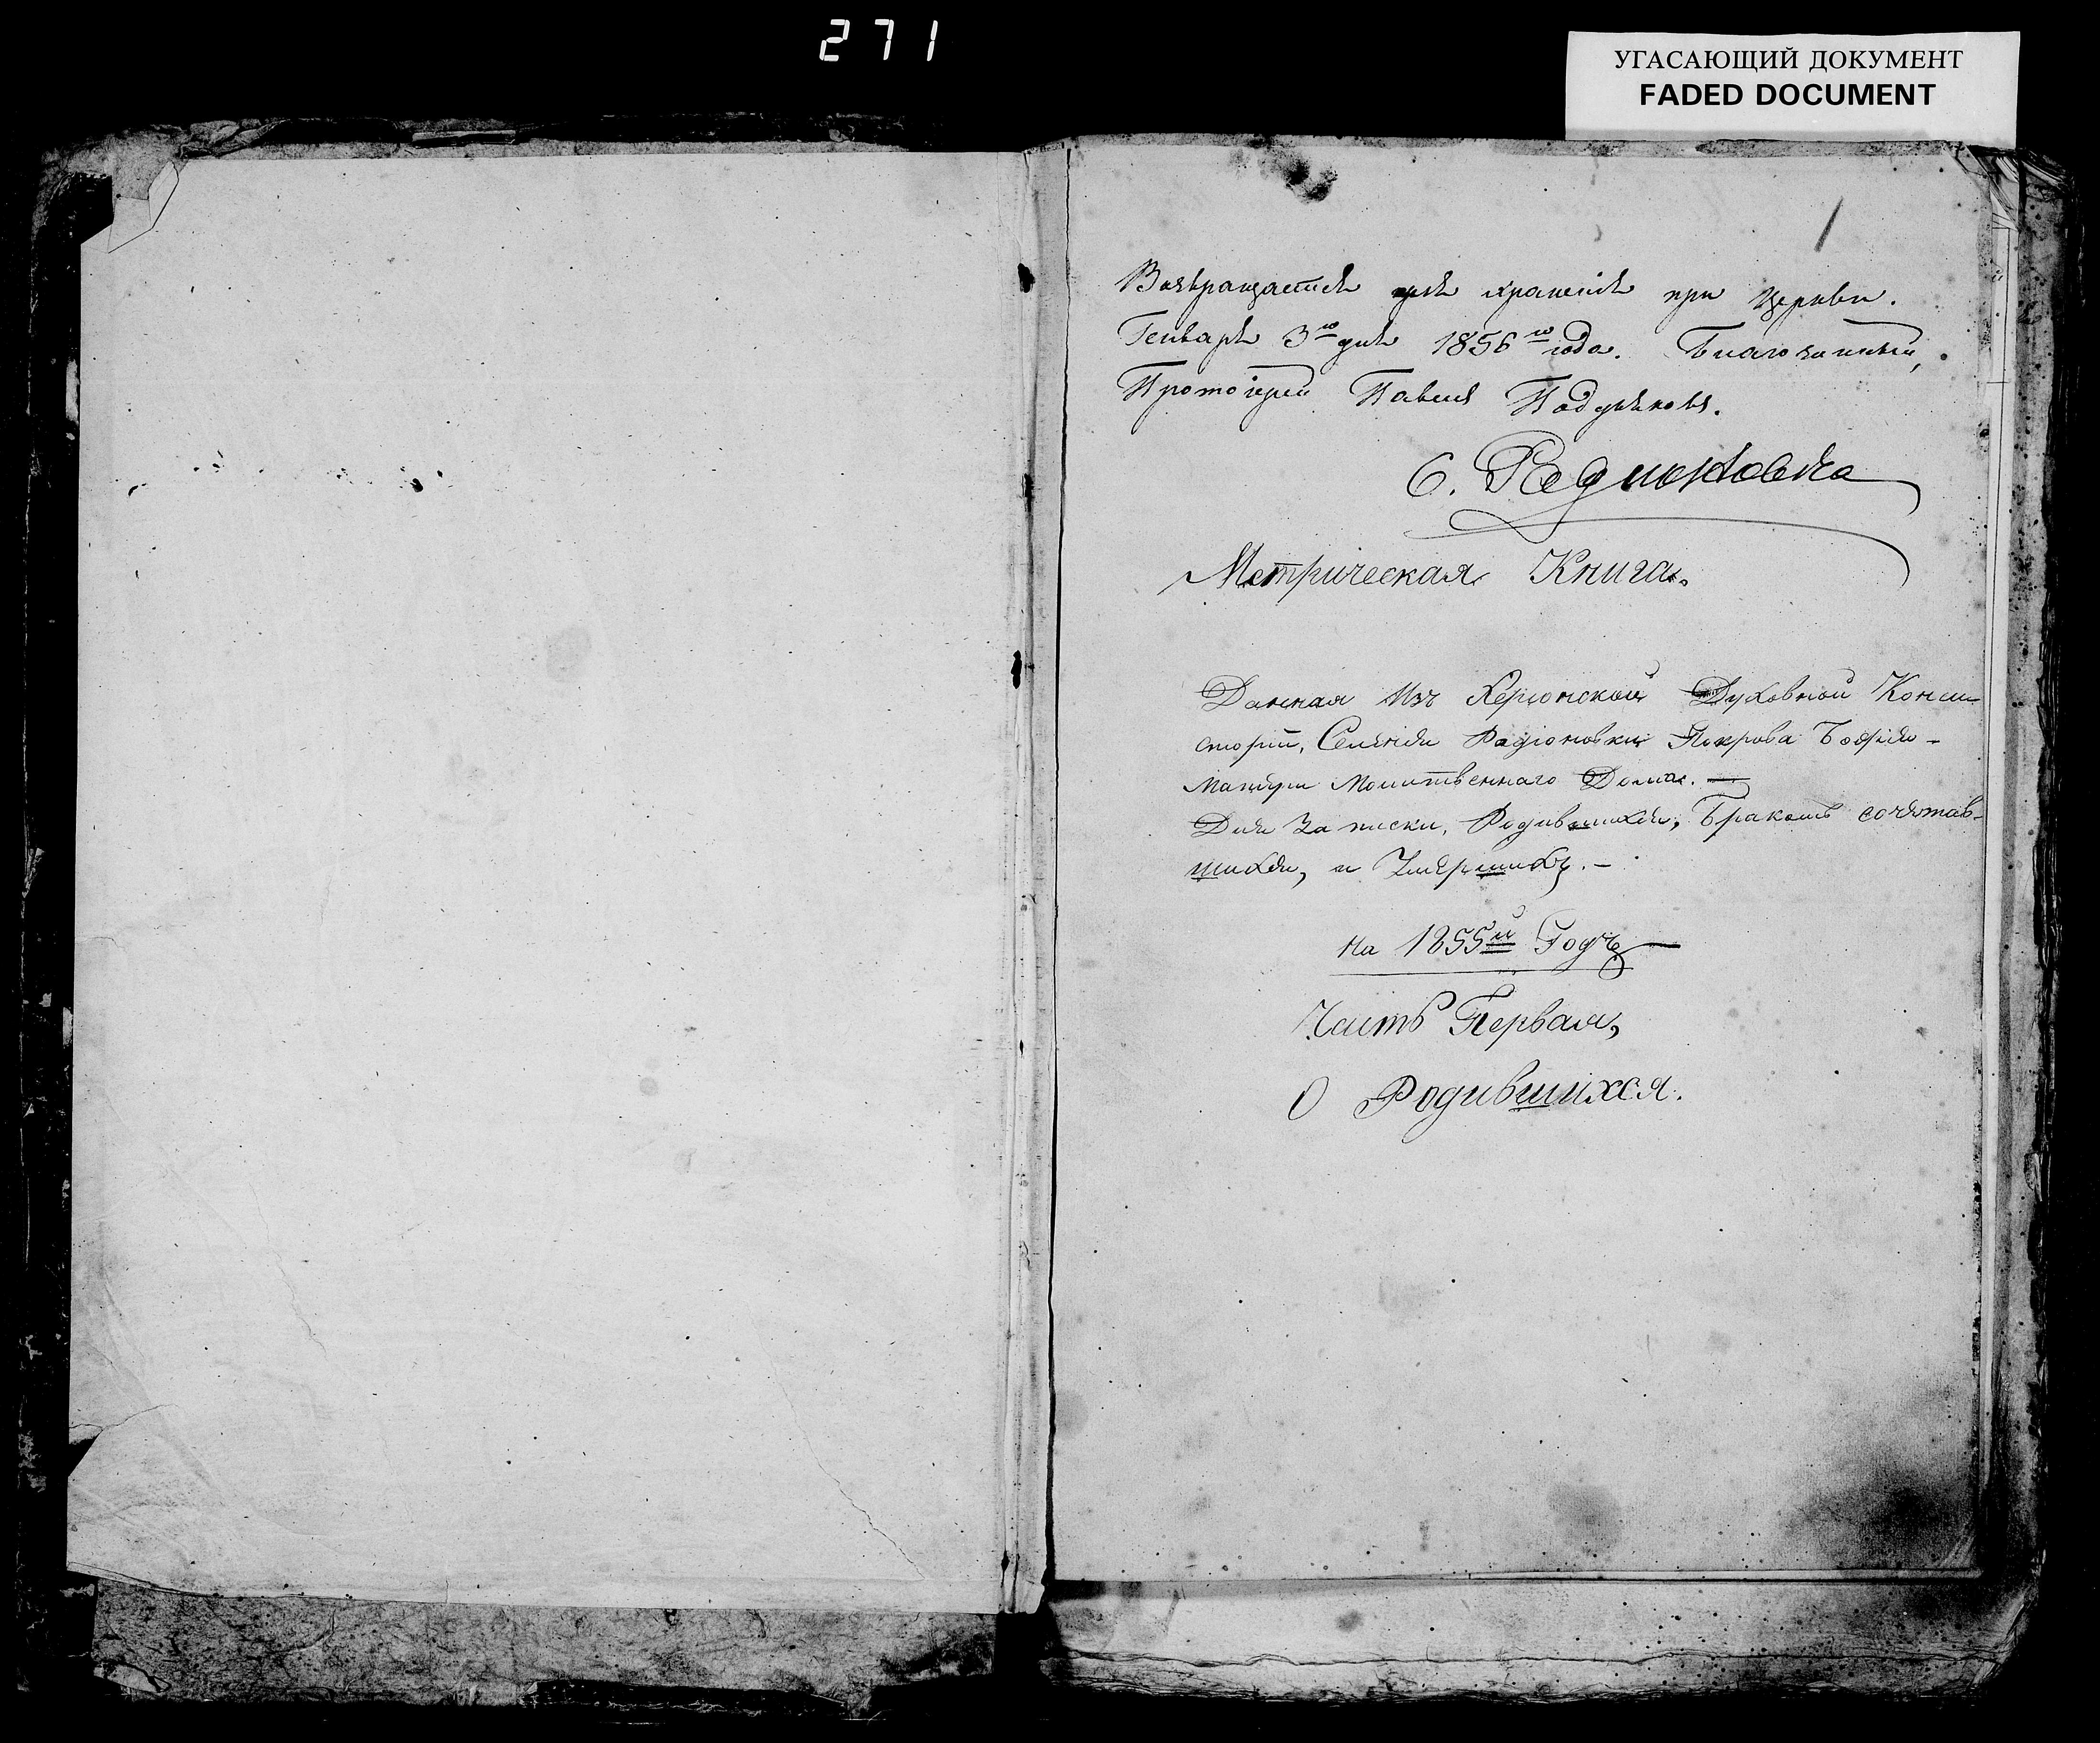 271
УГАСАЮЩИЙ ДОКУМЕНТ
FADED DOCUMENT
1
Возвращается для храненія при Церкви.
Генваря 3го дня 1856го года. Благочинный,
Протоіерей Павелъ
С. Радионовка
Метрическая Книга.
Данная Изъ Херсонской Духовной Конси-
сторіи, Селенія Радіоновки Покрова Божія-
Матери Молитвеннаго Дома. —
Для Записки, Родившихся, Бракомъ сочетав-
шихся, и Умершихъ. -
на 1855й Годъ
Часть Первая,
О Родившихся.